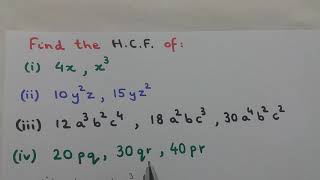 Find the H.C.F. of:
(i) 4x , x³
(ii) 10y²z , 15yz²
(iii) 12a³b²c⁴ , 18a²bc³ , 30a⁴b²c²
(iv) 20pq , 30qr , 40pr